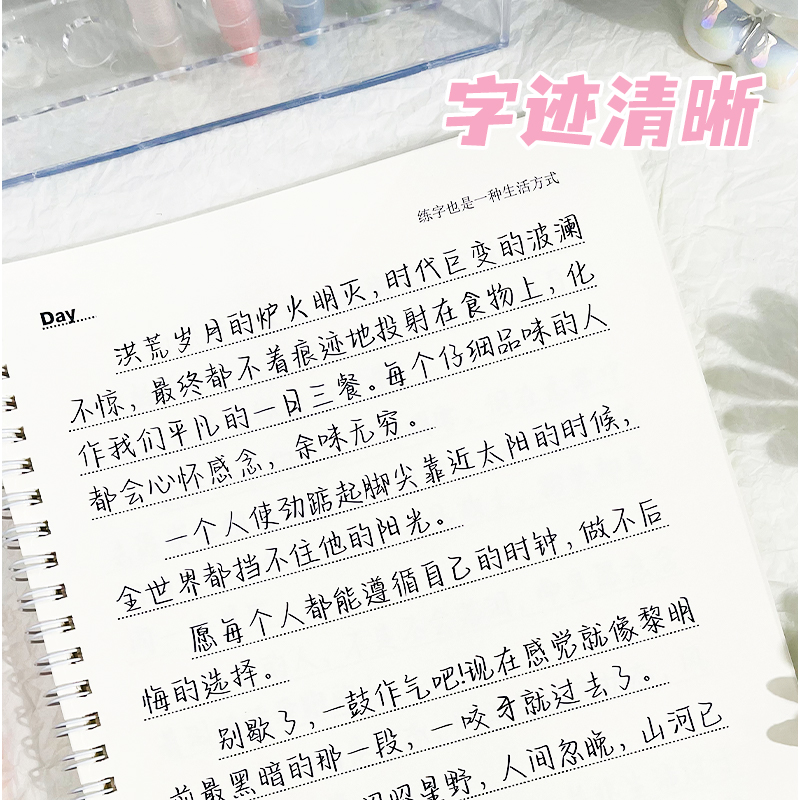 字迹清晰
练字也是一种生活方式
Day
洪荒岁月的炉火明灭，时代巨变的波澜
不惊，最终都不着痕迹地投射在食物上，化
作我们平凡的一日三餐。每个仔细品味的人
都会心怀感念，余味无穷。
一个人使劲踮起脚尖靠近太阳的时候，
全世界都挡不住他的阳光。
愿每个人都能遵循自己的时钟，做不后
悔的选择。
别歇了，一鼓作气吧!现在感觉就像黎明
前最黑暗的那一段，一咬牙就过去了。
照星野，人间忽晚，山河已